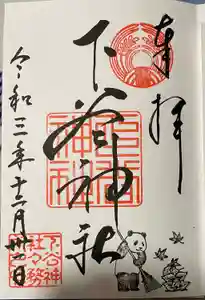 奉拝
下谷神社
令和三年十二月卅一日
下谷神社
下谷神社々務所